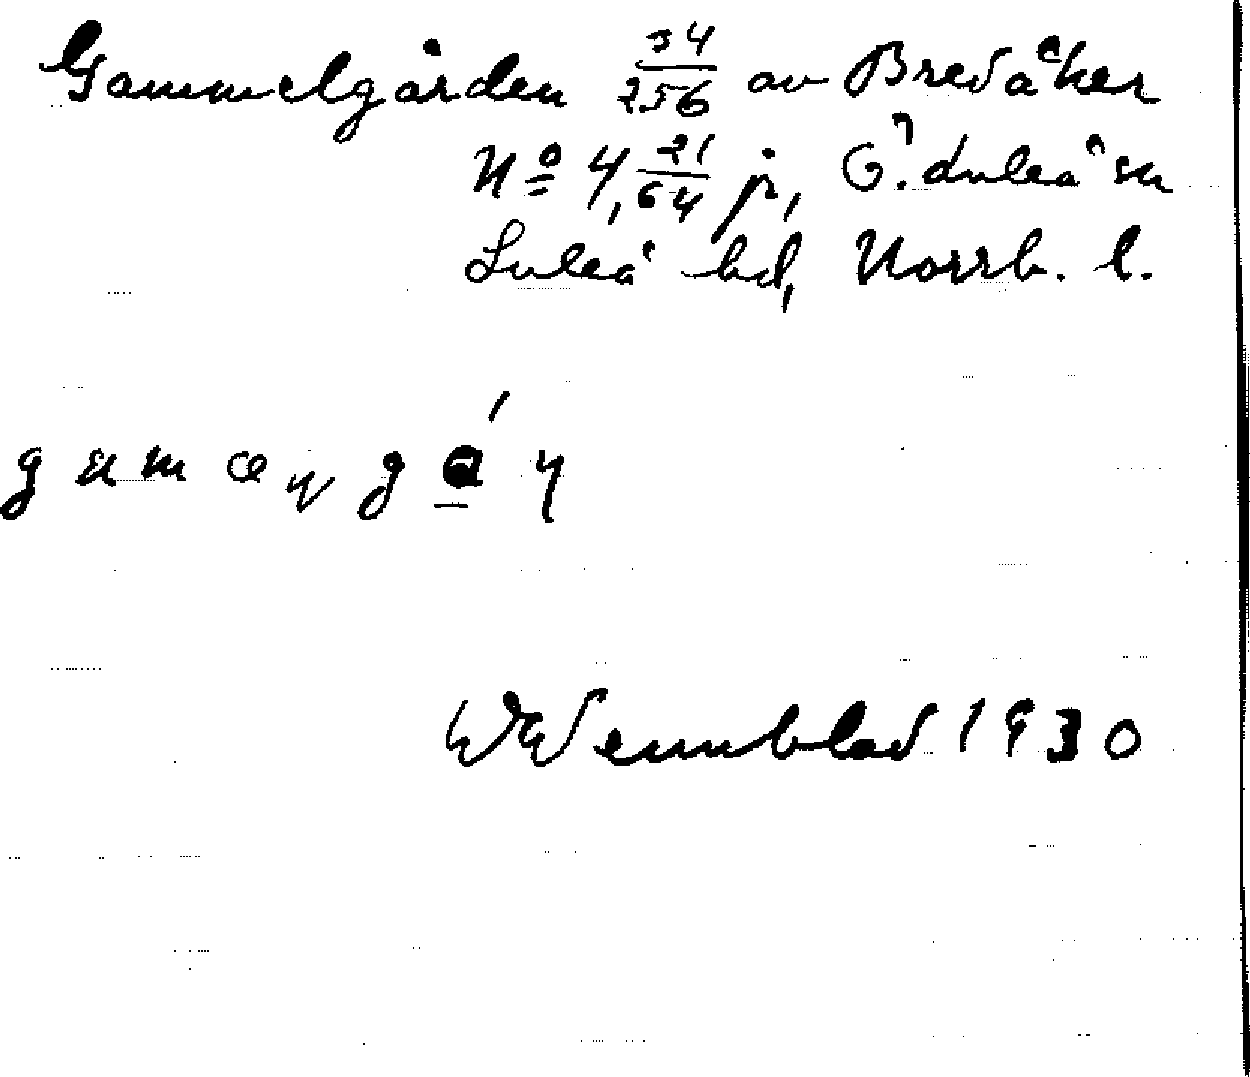 Gammelgården 34/256 av Bredåker
No 4, 21/64 j, G. Luleå sn
Luleå hd, Norrb. l.
Wennblad 1930